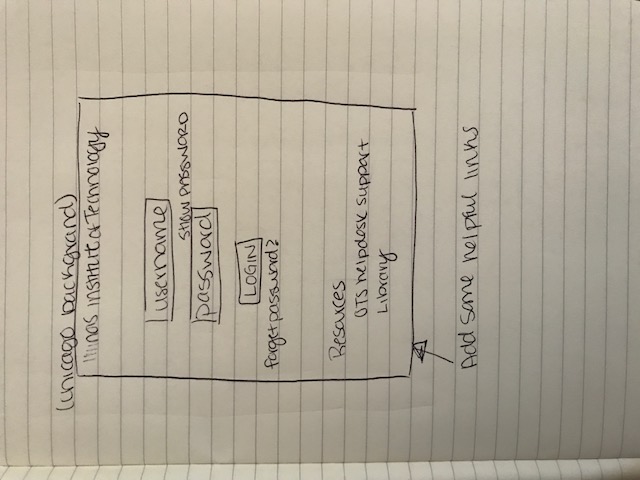 (Chicago background)
Illinois Institute of Technology
username
SHOW PASSWORD
password
LOGIN
forget password?
Resources
OTS helpdesk support
Library
Add some helpful links